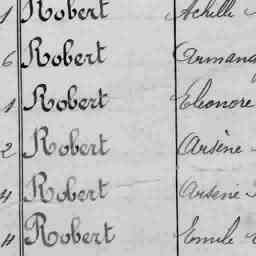 1 Robert Achille
6 Robert Armand
1 Robert Eléonore
2 Robert Arsène
4 Robert Arsène
4 Robert Emile